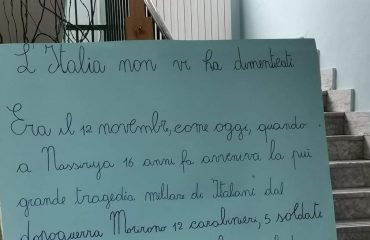 L'Italia non vi ha dimenticati
Era il 12 novembre, come oggi, quando
a Nassirya 16 anni fa avveniva la più
grande tragedia militare di "Italiani" dal
dopoguerra Morirono 12 carabinieri, 5 soldati